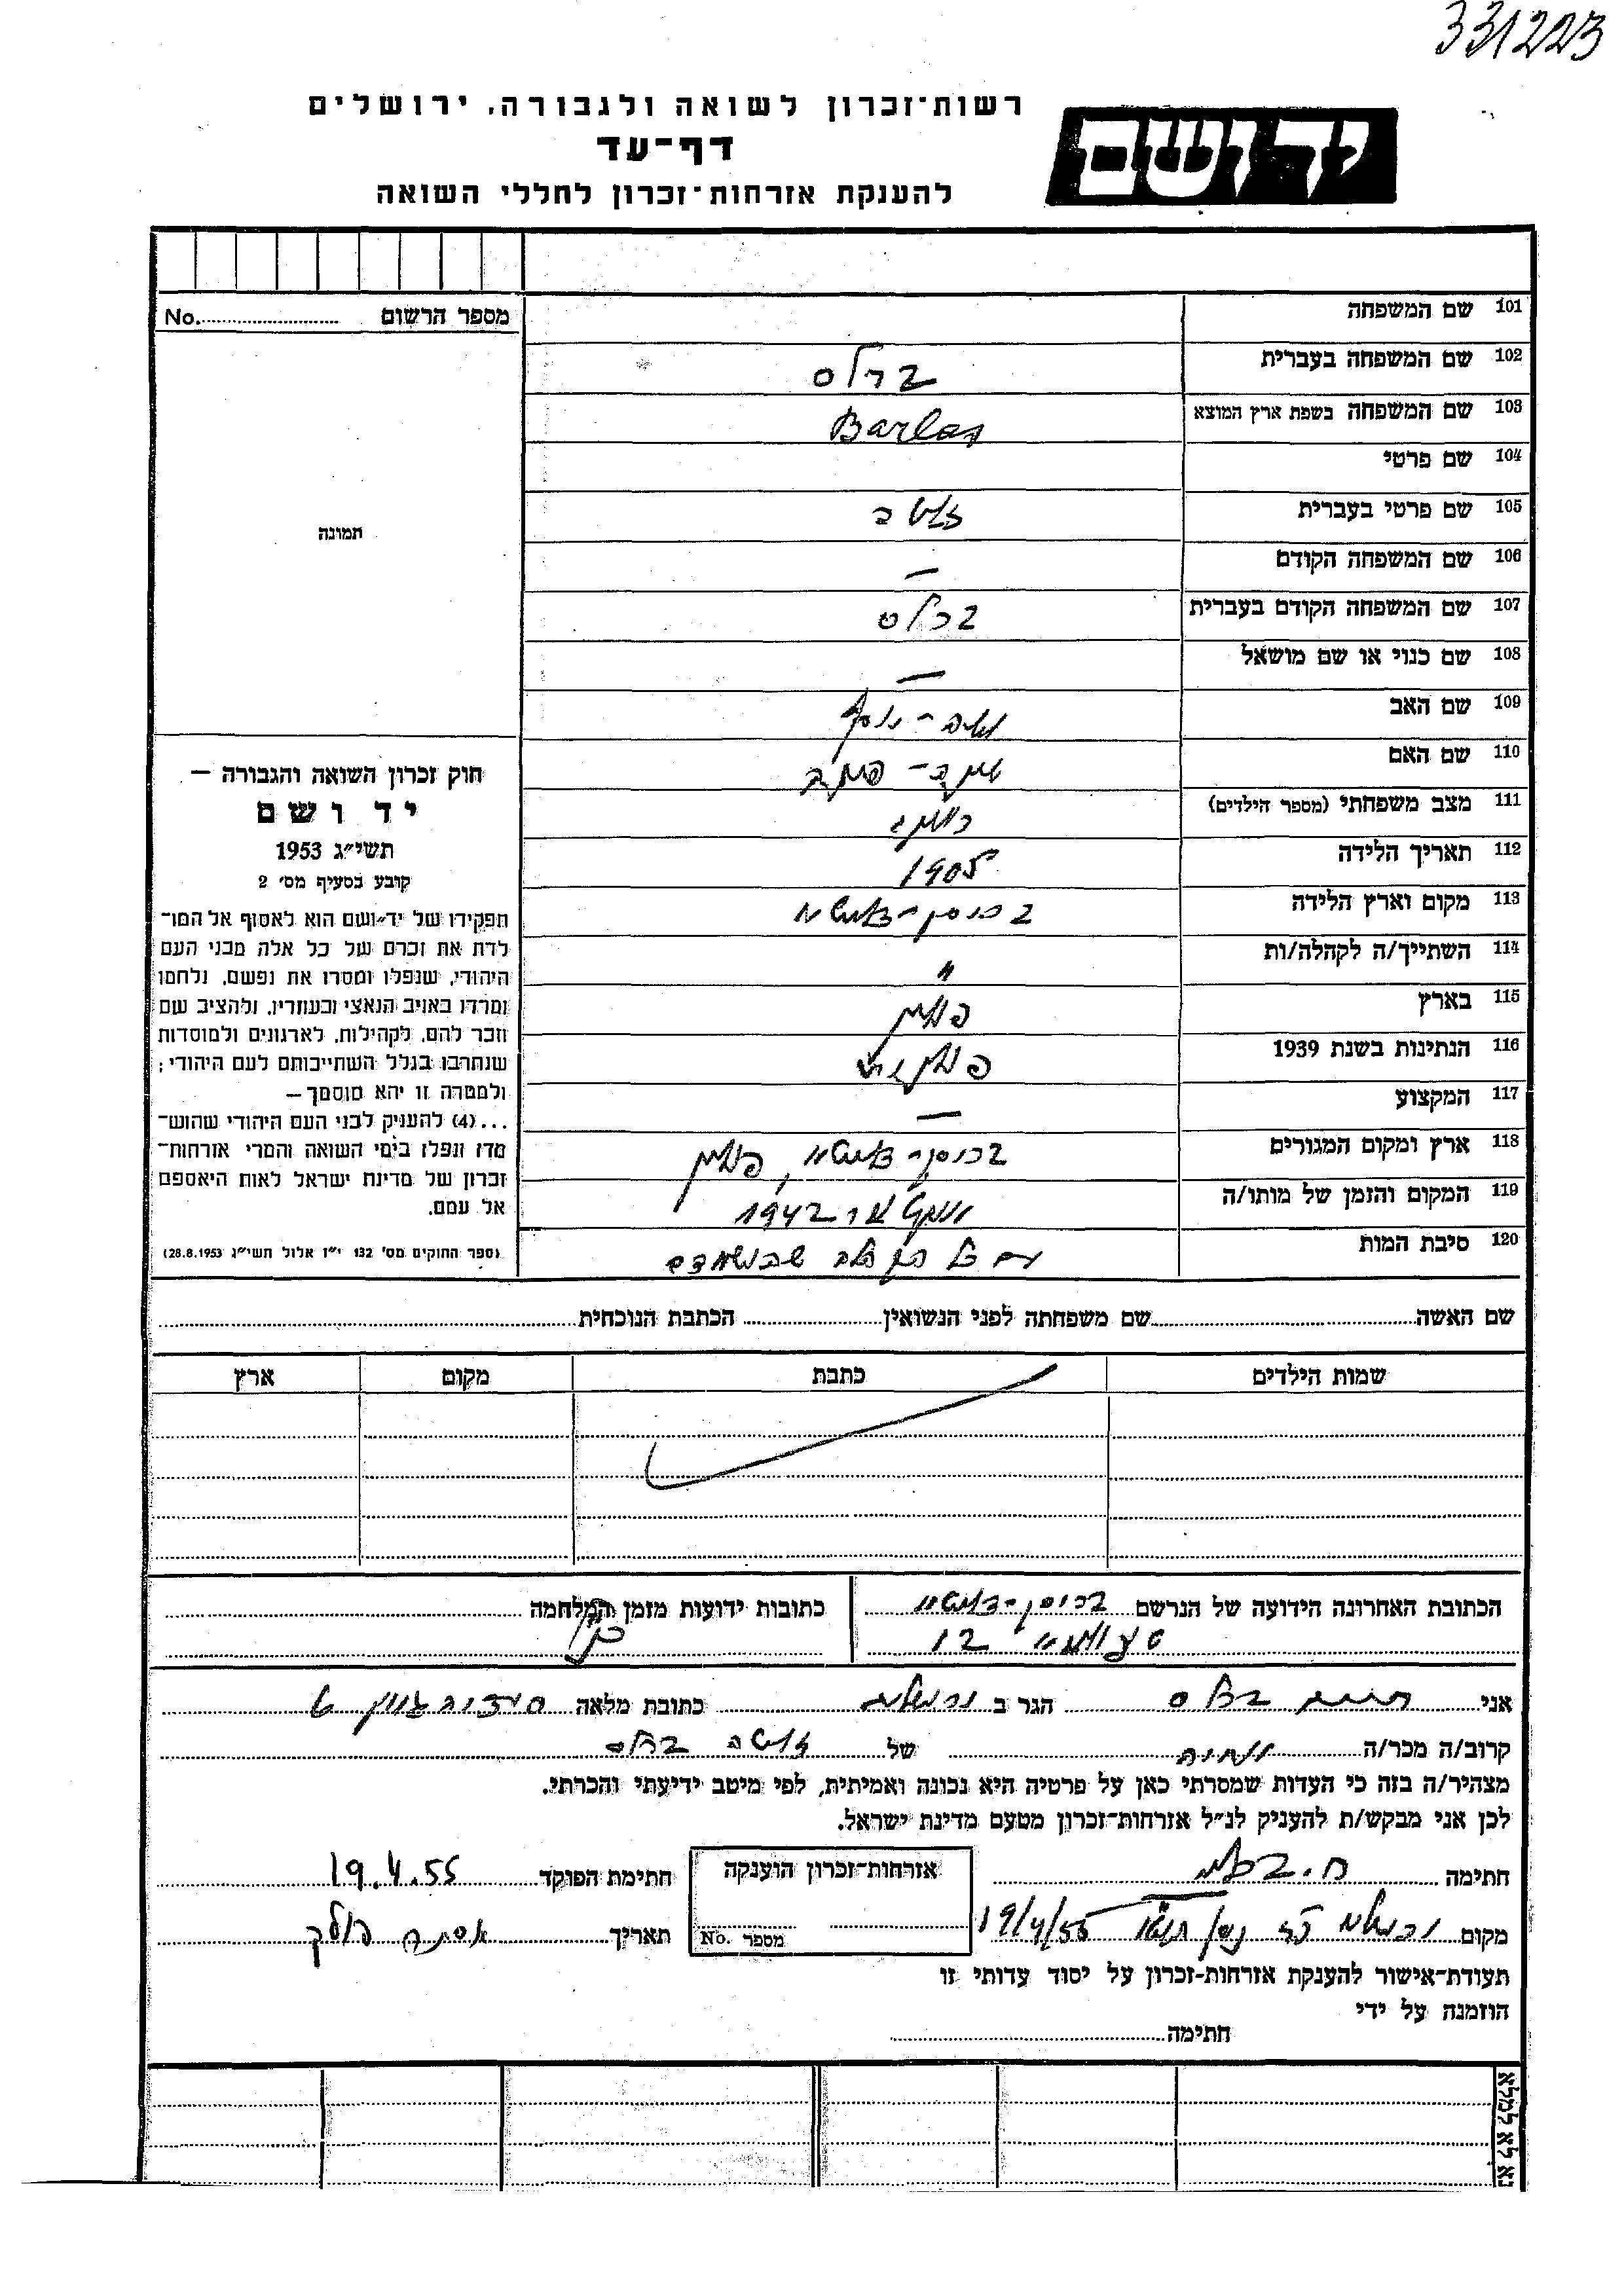 331223
יד ושם
רשות־זכרון לשואה ולגבורה, ירושלים
דף־עד
להענקת אזרחות־זכרון לחללי השואה
מספר הרשום No.
תמונה
חוק זכרון השואה והגבורה —
יד ושם
תשי״ג 1953
קובע בסעיף מס׳ 2
תפקידו של יד־ושם הוא לאסוף אל המו־
לדת את זכרם של כל אלה מבני העם
היהודי, שנפלו ומסרו את נפשם, נלחמו
ומרדו באויב הנאצי ובעוזריו, ולהציב שם
וזכר להם, לקהילות, לארגונים ולמוסדות
שנחרבו בגלל השתייכותם לעם היהודי;
ולמטרה זו יהא מוסמך —
...(4) להעניק לבני העם היהודי שהוש־
מדו ונפלו בימי השואה והמרי אזרחות־
זכרון של מדינת ישראל לאות היאספם
אל עמם.
(ספר החוקים מס׳ 132 י״ז אלול תשי״ג 28.8.1953)
101 שם המשפחה
102 שם המשפחה בעברית ברלס
103 שם המשפחה בשפת ארץ המוצא Barlas
104 שם פרטי
105 שם פרטי בעברית
106 שם המשפחה הקודם —
107 שם המשפחה הקודם בעברית ברלס
108 שם כנוי או שם מושאל —
109 שם האב
110 שם האם
111 מצב משפחתי (מספר הילדים)
112 תאריך הלידה 1905
113 מקום וארץ הלידה
114 השתייך/ה לקהלה/ות "
115 בארץ פולין
116 הנתינות בשנת 1939 פולנית
117 המקצוע —
118 ארץ ומקום המגורים פולין
119 המקום והזמן של מותו/ה 1942
120 סיבת המות
שם האשה שם משפחתה לפני הנשואין הכתבת הנוכחית
שמות הילדים כתבת מקום ארץ
הכתובת האחרונה הידועה של הנרשם
12
כתובות ידועות מזמן המלחמה
אני חיים ברלס הגר ב ירושלים כתובת מלאה
קרוב/ה מכר/ה של ברלס
מצהיר/ה בזה כי העדות שמסרתי כאן על פרטיה היא נכונה ואמיתית, לפי מיטב ידיעתי והכרתי.
לכן אני מבקש/ת להעניק לנ״ל אזרחות־זכרון מטעם מדינת ישראל.
חתימה ח. ברלס
מקום ירושלים כז ניסן תשט"ו 19/4/55
אזרחות־זכרון הוענקה
מספר No.
חתימת הפוקד 19.4.55
תאריך אסתר
תעודת־אישור להענקת אזרחות־זכרון על יסוד עדותי זו
הוזמנה על ידי
חתימה
נא לא למלא